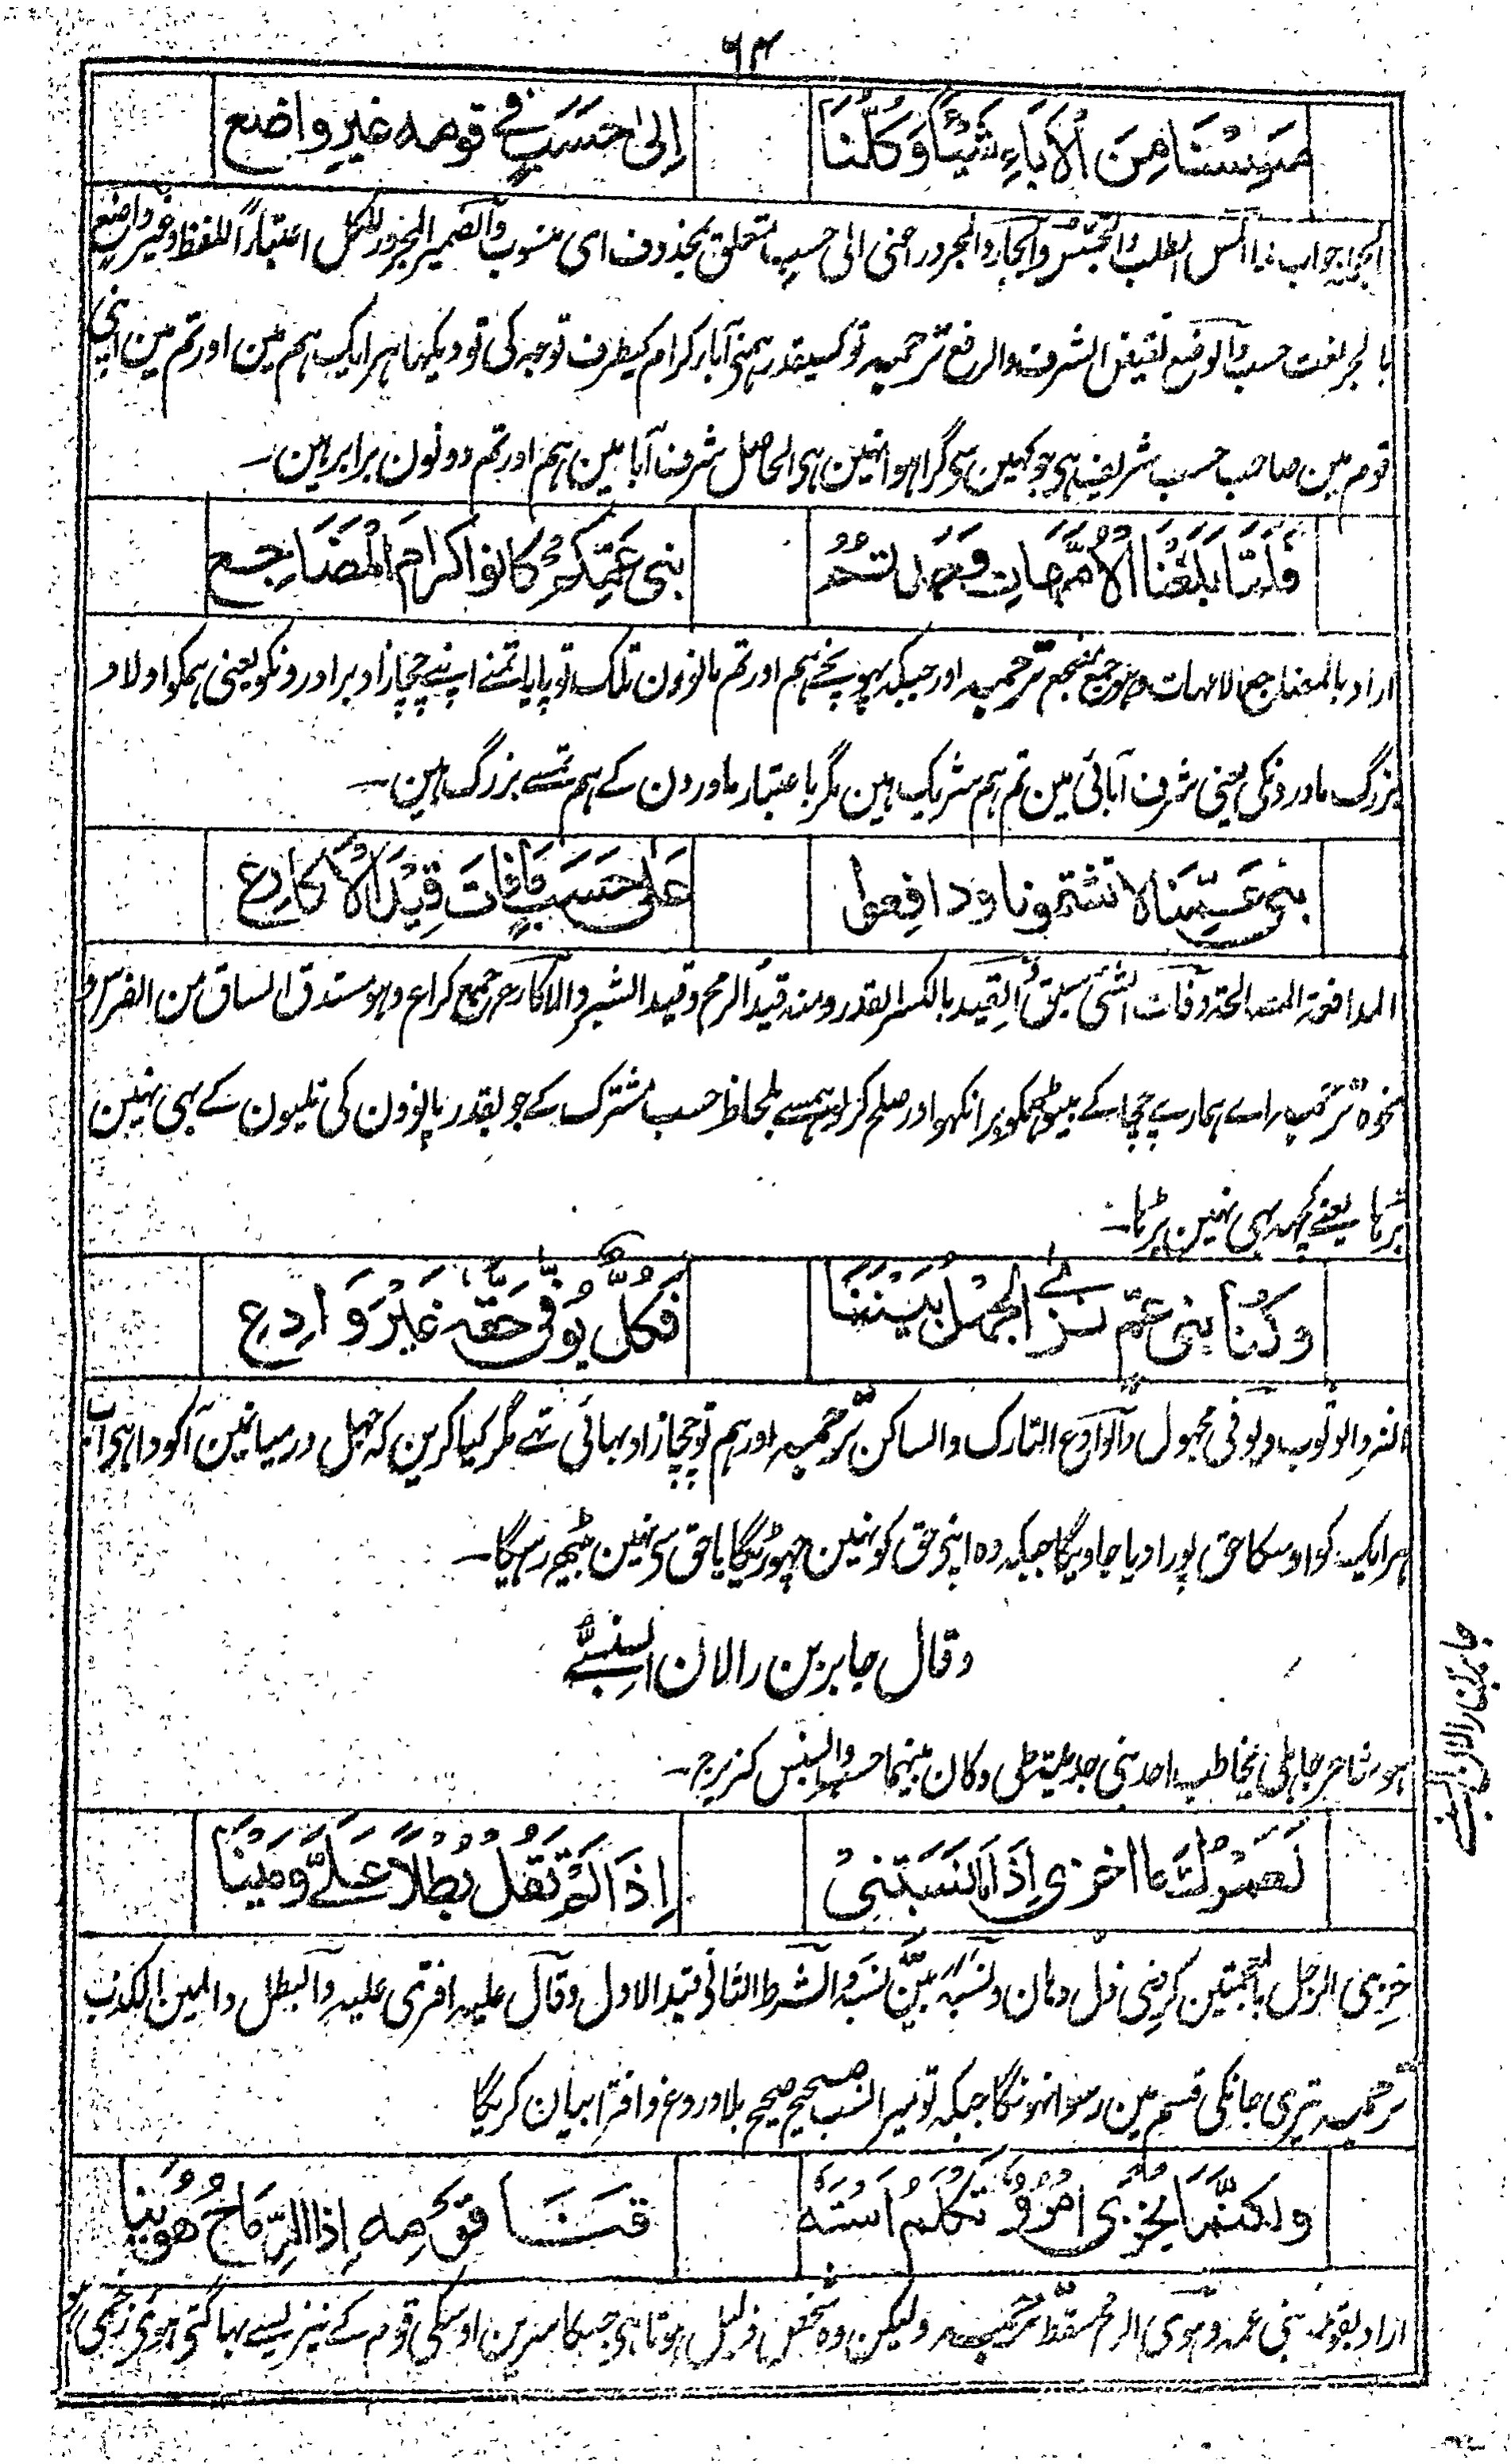 ۶۴
مَسِسْنَا مِنَ الْاٰبَاءِ شَيْئًا وَكُلُّنَا	اِلىٰ حَسَبٍ فِي قَومِه غيرِ واضع
الجواب لما المس الطلب والتجسس والجار والمجرور اعنی الی حسب متعلق بمحذوف ای منسوب والضمیر المجرور لکل اعتباراً للفظ وغیر واضع
بالجر نعت حسب والوضع نقیض الشرف والرفع ترجمہ تو کسیقدر ہمنی آباء کرام کیطرف توجہ کی تو دیکہا ہر ایک ہم مین اور تم مین اپنی
قوم مین صاحب حسب شریف ہی جو کہین سی گرا ہوا نہین ہی الحاصل شرف آبا مین ہم اور تم دونون برابر ہین۔
فَلَمَّا بَلَغْنَا الْاُمَّهَاتِ وَجَدْتُمُ	بنی عَمِّكُمْ كانوا كرامَ الْمَضَاجِع
اراد بالمضاجع الامہات وہو جمع مضجع ترجمہ اور جبکہ پہونچے ہم اور تم مانوون تلک تو پایا تمنے اپنے چچازاد برادرونکو یعنی ہمکو اولاد
بزرگ مادرونکی یعنی شرف آبائی مین تم ہم شریک ہین مگر باعتبار مادرون کے ہم تمسے بزرگ ہین۔
بنی عَمِّنَا لا تشتمونا ودافِعوا	عَلىٰ حَسَبٍ مَا فَاتَ قِيْدَ الْاَكارِعِ
المدافعۃ المصالحۃ وفات الشیٔ سبق والقید بالکسر القدر ومنہ قید الرمح وقید الشبر والاکارع جمع کراع وہو مستدق الساق من الفرس و
نحوہ ترجمہ اے ہمارے چچا کے بیٹو ہمکو برا نکہو اور صلح کرلو ہمسے بلحاظ حسب مشترک کے جو بقدر پانوون کی نلیون کے بہی نہین
بڑہا یعنے کچہہ بہی نہین بڑہا۔
وكُنَّا بنی عَمٍّ نَزَا الجهْلُ بَيْنَنَا	فَكُلٌّ يُوَفّٰى حَقَّهٗ غَيْرَ وَادِعِ
النزو الوثوب ویوفی مجہول والوادع التارک والساکن ترجمہ اور ہم تو چچازاد بہائی تہے مگر کیا کرین کہ جہل درمیانمین آکودا ہی اب
ہر ایک کو اوسکا حق پورا دیا جاویگا جبکہ وہ اپنی حق کو نہین چہوڑیگا یا حق سی نہین بیٹھ رہیگا۔
وقال جابر بن رالان السنبسے
جابر بن رالان السنبسے
ہو شاعر جاہلی یخاطب احد بنی جدیلۃ طی وکان بینہما حسب والسنبس کزبرج۔
لَعَمْرُكَ ما اخزى اِذَا مَا نَسَبْتَنِيْ	اِذَا لَمْ تَقُلْ بُطْلًا عَلَيَّ وَمَيْنَا
خزی الرجل بالمعجمتین کرضی ذل وہان ونسبہ بین نسبہ والشرط الثانی قید الاول وقال علیہ افتری علیہ والبطل والمین الکذب
ترجمہ تیری جانکی قسم مین رسوا نہونگا جبکہ تو میرا نسب صحیح صحیح بلا دروغ وافترا بیان کریگا
ولكنَّمَا يَخْزٰى امْرُؤٌ تَكْلِمُ اسْتَهٗ	قَنَا قَوْمِهٖ اِذَا الرِّمَاحُ هَوَيْنَا
اراد بقومہ بنی عمہ وہوی الرمح سقط ترجمہ ولیکن وہ شخص ذلیل ہوتا ہی جسکا سرین اوسکی قوم کے نیزے بہاگتی ہوئی زخمی